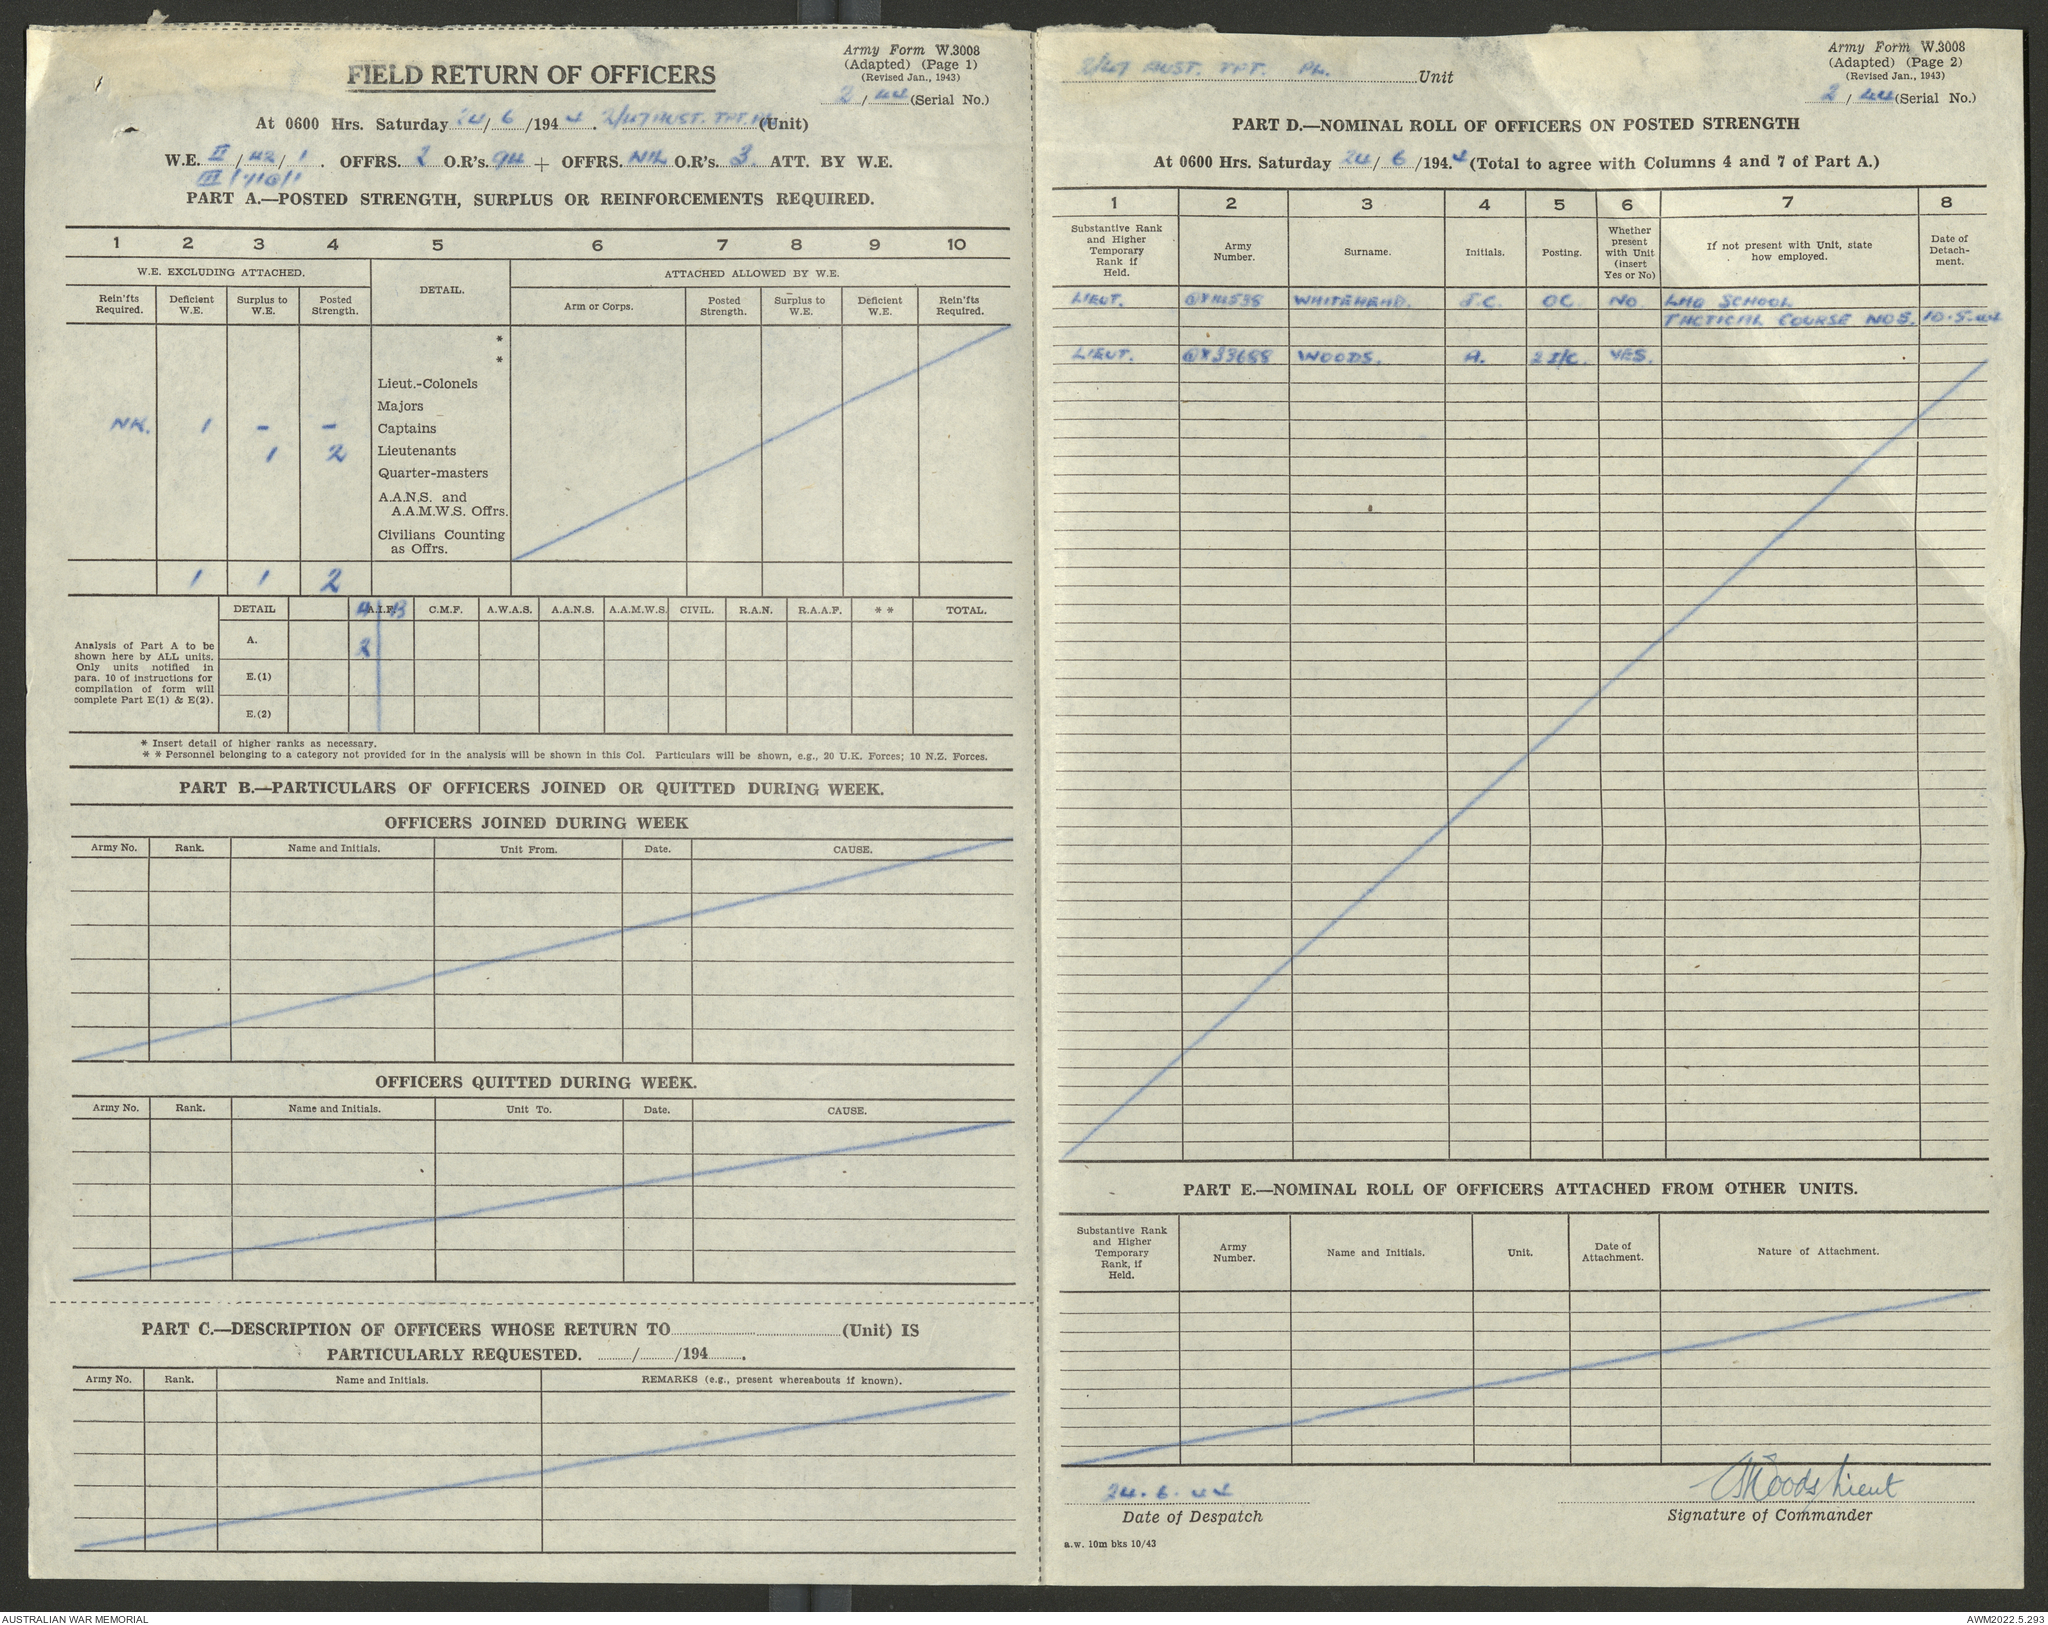 Army Form W.3008
(Adapted) (Page 1)
(Revised Jan., 1943)
2 / 44 (Serial No.)
FIELD RETURN OF OFFICERS
At 0600 Hrs. Saturday 24/ 6 /1944. 2/47 AUST. TPT. PL (Unit)
W.E. II / 42 / 1 . OFFRS. 2 O.R's. 94 + OFFRS. NIL O.R's. 3 ATT. BY W.E.
III /
PART A.—POSTED STRENGTH, SURPLUS OR REINFORCEMENTS REQUIRED.
1 2 3 4 5 6 7 8 9 10
W.E. EXCLUDING ATTACHED. DETAIL. ATTACHED ALLOWED BY W.E.
Rein'fts Required. Deficient W.E. Surplus to W.E. Posted Strength. Arm or Corps. Posted Strength. Surplus to W.E. Deficient W.E. Rein'fts Required.
*
*
Lieut.-Colonels
Majors
1 – – Captains
1 2 Lieutenants
Quarter-masters
A.A.N.S. and
A.A.M.W.S. Offrs.
Civilians Counting
as Offrs.
1 1 2
DETAIL A A.I.F. B C.M.F. A.W.A.S. A.A.N.S. A.A.M.W.S. CIVIL. R.A.N. R.A.A.F. * * TOTAL.
Analysis of Part A to be
shown here by ALL units.
Only units notified in
para. 10 of instructions for
compilation of form will
complete Part E(1) & E(2).
A. 2
E.(1)
E.(2)
* Insert detail of higher ranks as necessary.
* * Personnel belonging to a category not provided for in the analysis will be shown in this Col. Particulars will be shown, e.g., 20 U.K. Forces; 10 N.Z. Forces.
PART B.—PARTICULARS OF OFFICERS JOINED OR QUITTED DURING WEEK.
OFFICERS JOINED DURING WEEK
Army No. Rank. Name and Initials. Unit From. Date. CAUSE.
OFFICERS QUITTED DURING WEEK.
Army No. Rank. Name and Initials. Unit To. Date. CAUSE.
PART C.—DESCRIPTION OF OFFICERS WHOSE RETURN TO (Unit) IS
PARTICULARLY REQUESTED. / /194 .
Army No. Rank. Name and Initials. REMARKS (e.g., present whereabouts if known).
Army Form W.3008
(Adapted) (Page 2)
(Revised Jan., 1943)
2 / 44 (Serial No.)
2/47 AUST. TPT. PL. Unit
PART D.—NOMINAL ROLL OF OFFICERS ON POSTED STRENGTH
At 0600 Hrs. Saturday 24/ 6 /194.4 (Total to agree with Columns 4 and 7 of Part A.)
1 2 3 4 5 6 7 8
Substantive Rank and Higher Temporary Rank if Held. Army Number. Surname. Initials. Posting. Whether present with Unit (insert Yes or No) If not present with Unit, state how employed. Date of Detach-ment.
LIEUT. WHITEHEAD. J.C. OC. NO LHQ SCHOOL
TACTICAL COURSE NO5. 10.5.44
LIEUT. QX33688 WOODS. A. 2 I/C. YES.
PART E.—NOMINAL ROLL OF OFFICERS ATTACHED FROM OTHER UNITS.
Substantive Rank and Higher Temporary Rank, if Held. Army Number. Name and Initials. Unit. Date of Attachment. Nature of Attachment.
24. 6. 44
Date of Despatch
AWoods Lieut
Signature of Commander
a.w. 10m bks 10/43
AUSTRALIAN WAR MEMORIAL
AWM2022.5.293